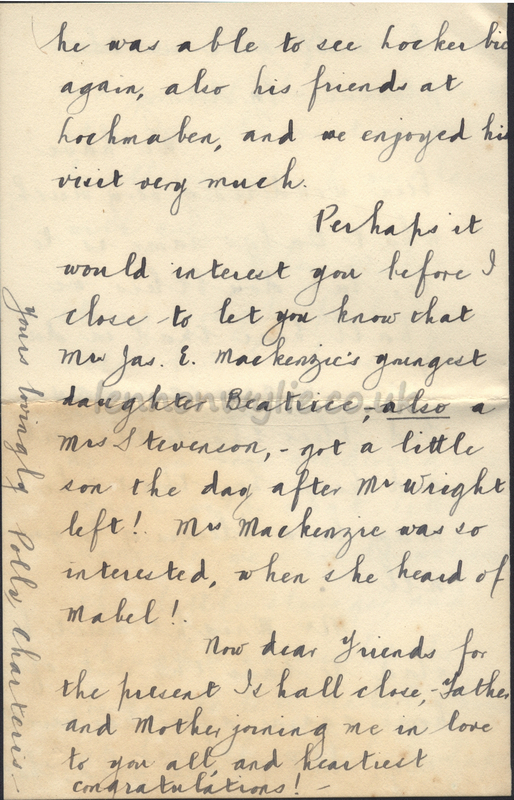 he was able to see Lockerbie
again, also his friends at
Lochmaben, and we enjoyed his
visit very much.
Perhaps it
would interest you before I
close to let you know that
Mrs Jas. E. Mackenzie's youngest
daughter Beatrice,- also a
Mrs Stevenson,- got a little
son the day after Mr Wright
left! Mrs Mackenzie was so
interested, when she heard of
Mabel!
Now dear Friends for
the present I shall close,- Father
and Mother joining me in love
to you all, and heartiest
congratulations! -
Yours lovingly Polly Charteris -
lennonwylie.co.uk